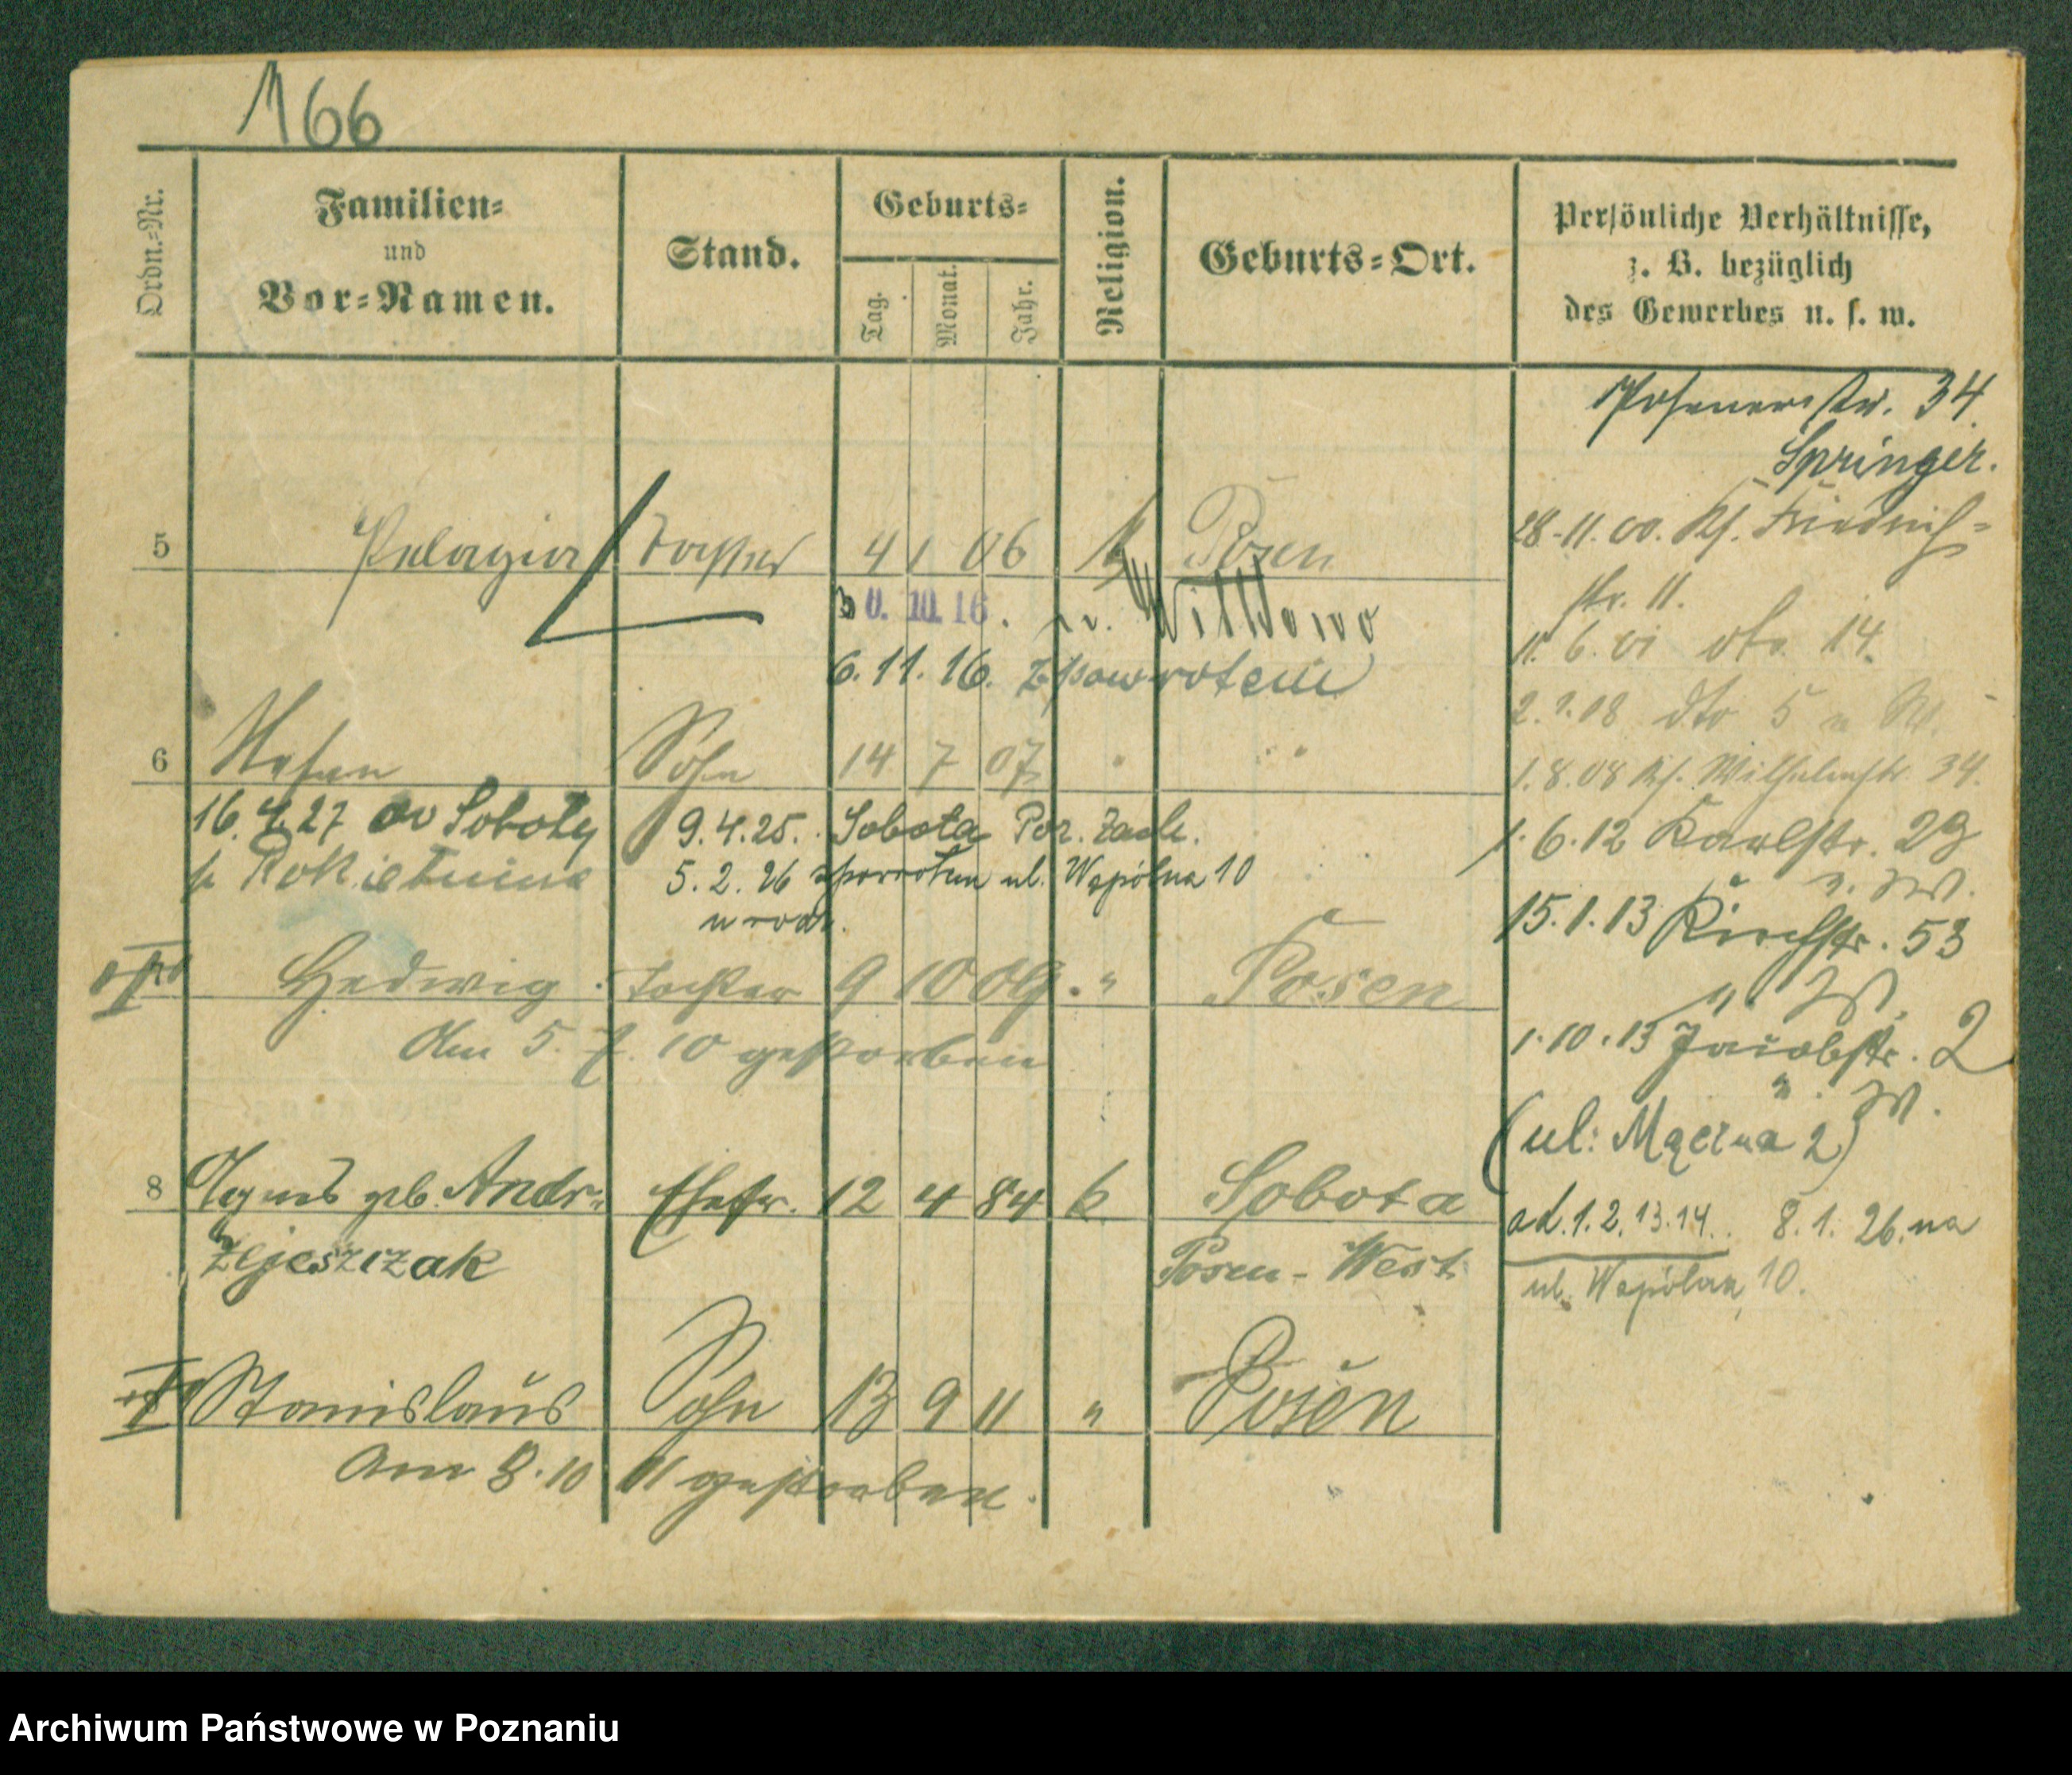 166
Ordn.=Nr.
Familien=
und
Vor=Namen.
Stand.
Geburts=
Tag.
Monat.
Jahr.
Religion.
Geburts=Ort.
Persönliche Verhältnisse,
z. B. bezüglich
des Gewerbes u. s. w.
Posenerstr. 34
Springer.
28.11.00. Friedrich=
str. 11.
5 Pelagia Tochter 4 1 06 k Posen
30. 10. 16. n. Wittkowo
6.11.16. z powrotem
11. 6. 01 dto. 14.
2. 08 dto 5
6 Sohn 14 7 07 " "
1.8.08 Wilhelmstr. 34.
16.4.27 do Soboty 9.4.25. Sobota Poz. Zach.
p. Rokietnica 5.2.26 z powrotem ul. Wspólna 10
u rodz.
1.6.12 Karlstr. 29
b. W.
15.1.13 Kirchstr. 53
b. W.
Hedwig Tochter 9 10 09. " Posen
Am 5. 7. 10 gestorben
1.10.13 Jacobstr. 2
b. W.
(ul. Mączna 2)
8 Agnes geb. Andr= Ehefr. 12 4 84 k Sobota
zejeszczak Posen-West
ad. 1. 2. 13. 14.. 8.1.26. na
ul. Wspólna 10.
Stanislaus Sohn 13 9 11 " Posen
Am 8.10 11 gestorben.
Archiwum Państwowe w Poznaniu